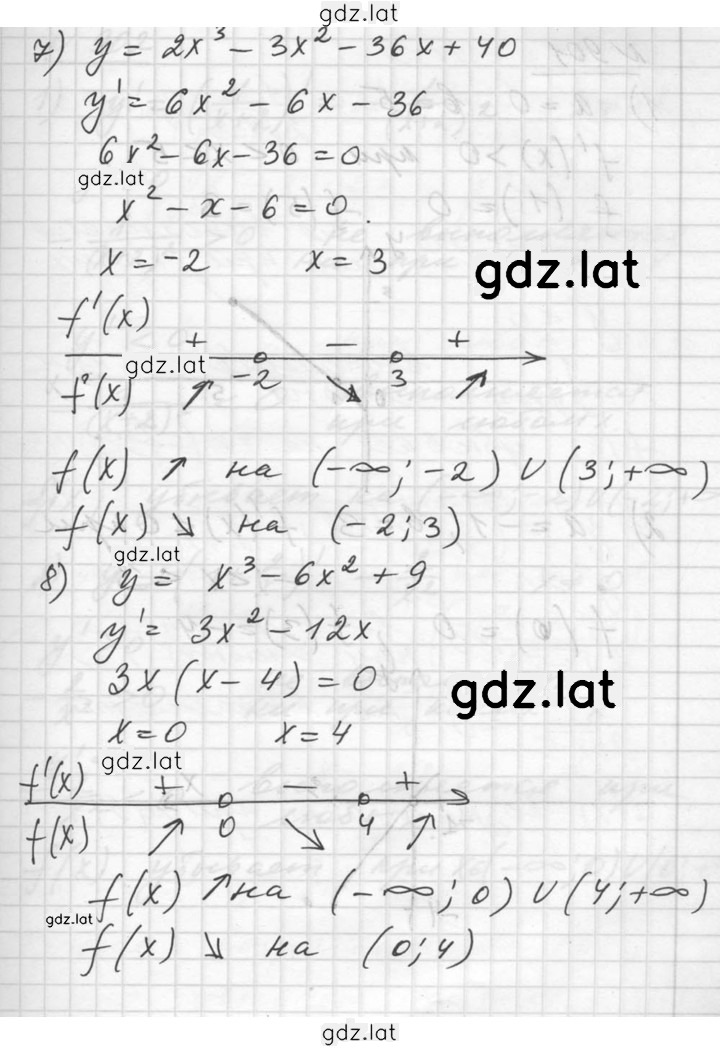 gdz.lat
7) y = 2x³ - 3x² - 36x + 40
y' = 6x² - 6x - 36
6x² - 6x - 36 = 0
gdz.lat
x² - x - 6 = 0
x = -2 x = 3
gdz.lat
f'(x) + — +
gdz.lat
-2 3
f(x) ↗ ↘ ↗
f(x) ↗ на (-∞; -2) ∪ (3; +∞)
f(x) ↘ на (-2; 3)
gdz.lat
8) y = x³ - 6x² + 9
y' = 3x² - 12x
3x(x - 4) = 0
gdz.lat
x = 0 x = 4
gdz.lat
f'(x) + — +
0 4
f(x) ↗ ↘ ↗
f(x) ↗ на (-∞; 0) ∪ (4; +∞)
gdz.lat
f(x) ↘ на (0; 4)
gdz.lat